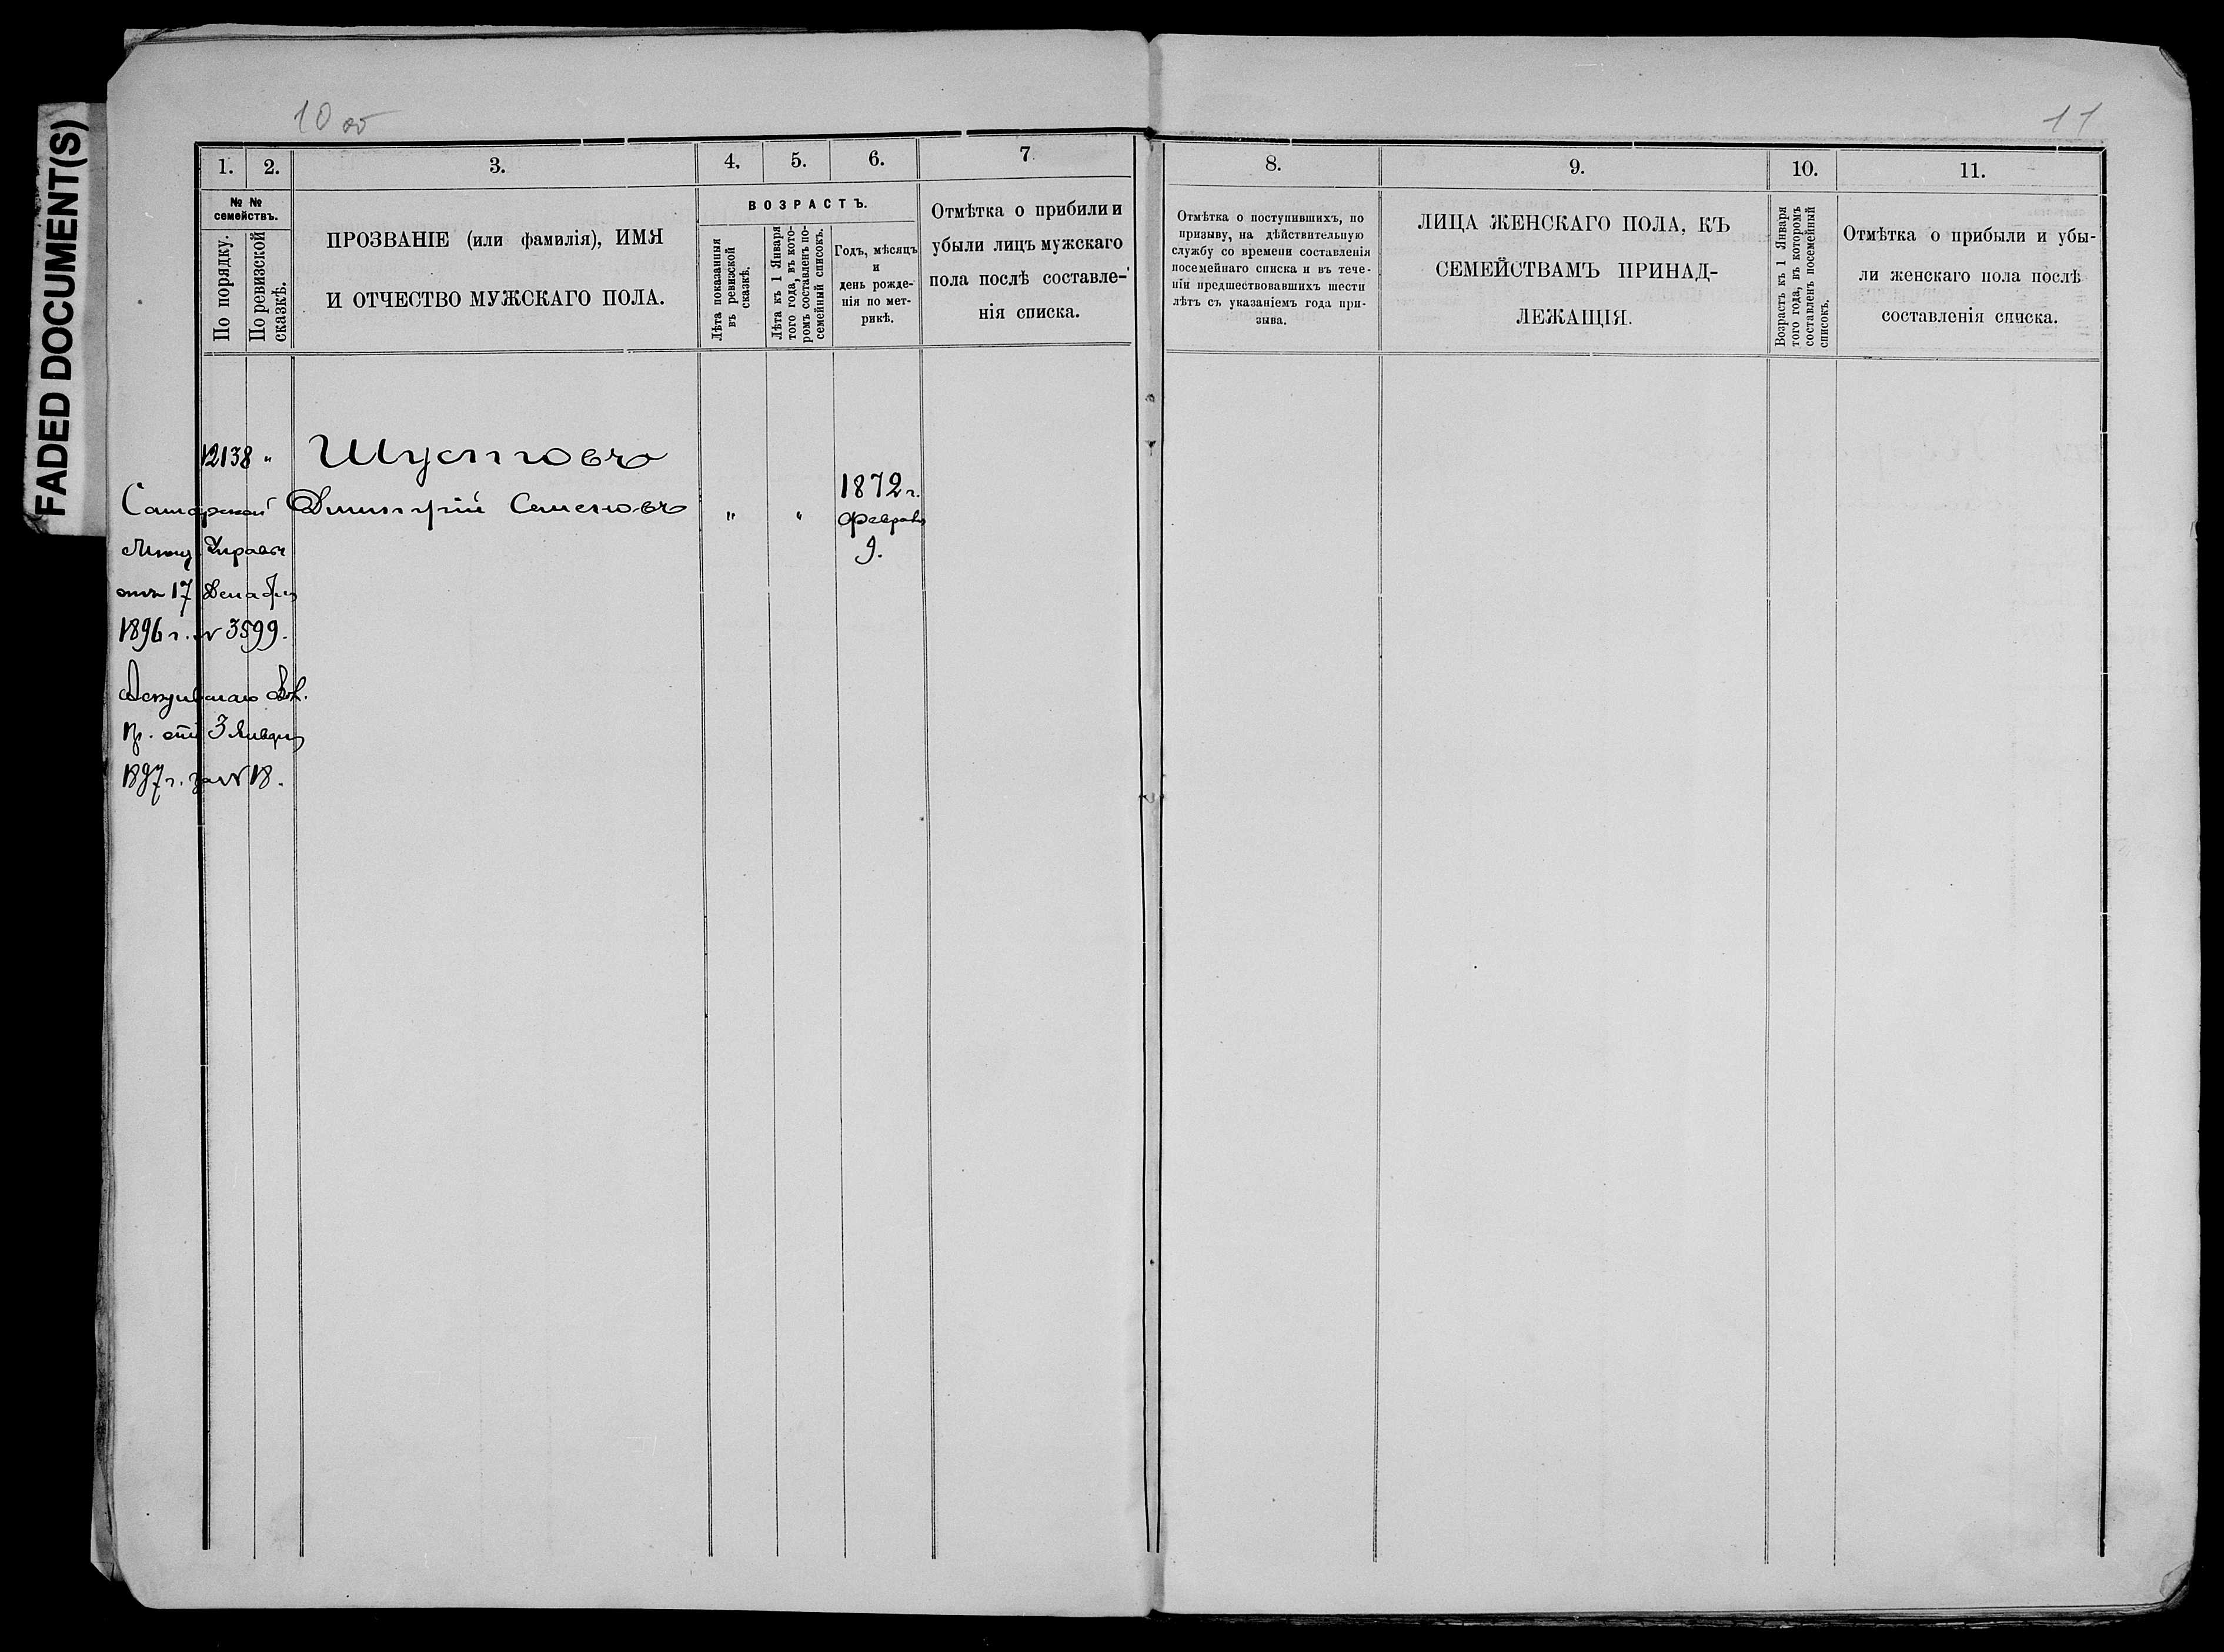 FADED DOCUMENT(S)
10 об
11
1.
2.
3.
4.
5.
6.
7.
№ №
семействъ.
По порядку.
По ревизской
сказкѣ.
ПРОЗВАНІЕ (или фамилія), ИМЯ
И ОТЧЕСТВО МУЖСКАГО ПОЛА.
ВОЗРАСТЪ.
Лѣта показанныя
въ ревизской
сказкѣ.
Лѣта къ 1 Января
того года, въ кото-
ромъ составленъ по-
семейный списокъ.
Годъ, мѣсяцъ
и
день рожде-
нія по мет-
рикѣ.
Отмѣтка о прибыли и
убыли лицъ мужскаго
пола послѣ составле-
нія списка.
8.
9.
10.
11.
Отмѣтка о поступившихъ, по
призыву, на дѣйствительную
службу со времени составленія
посемейнаго списка и въ тече-
ніи предшествовавшихъ шести
лѣтъ съ указаніемъ года при-
зыва.
ЛИЦА ЖЕНСКАГО ПОЛА, КЪ
СЕМЕЙСТВАМЪ ПРИНАД-
ЛЕЖАЩІЯ.
Возрастъ къ 1 Января
того года, въ которомъ
составленъ посемейный
списокъ.
Отмѣтка о прибыли и убы-
ли женскаго пола послѣ
составленія списка.
12138 " Шустовъ
Дмитрій Семеновъ " "
1872 г.
Февраля
9.
Самарской
Мѣщ. Управы
отъ 17 Декабря
1896 г. № 3599.
отъ 3 Января
1897 г. за № 18.